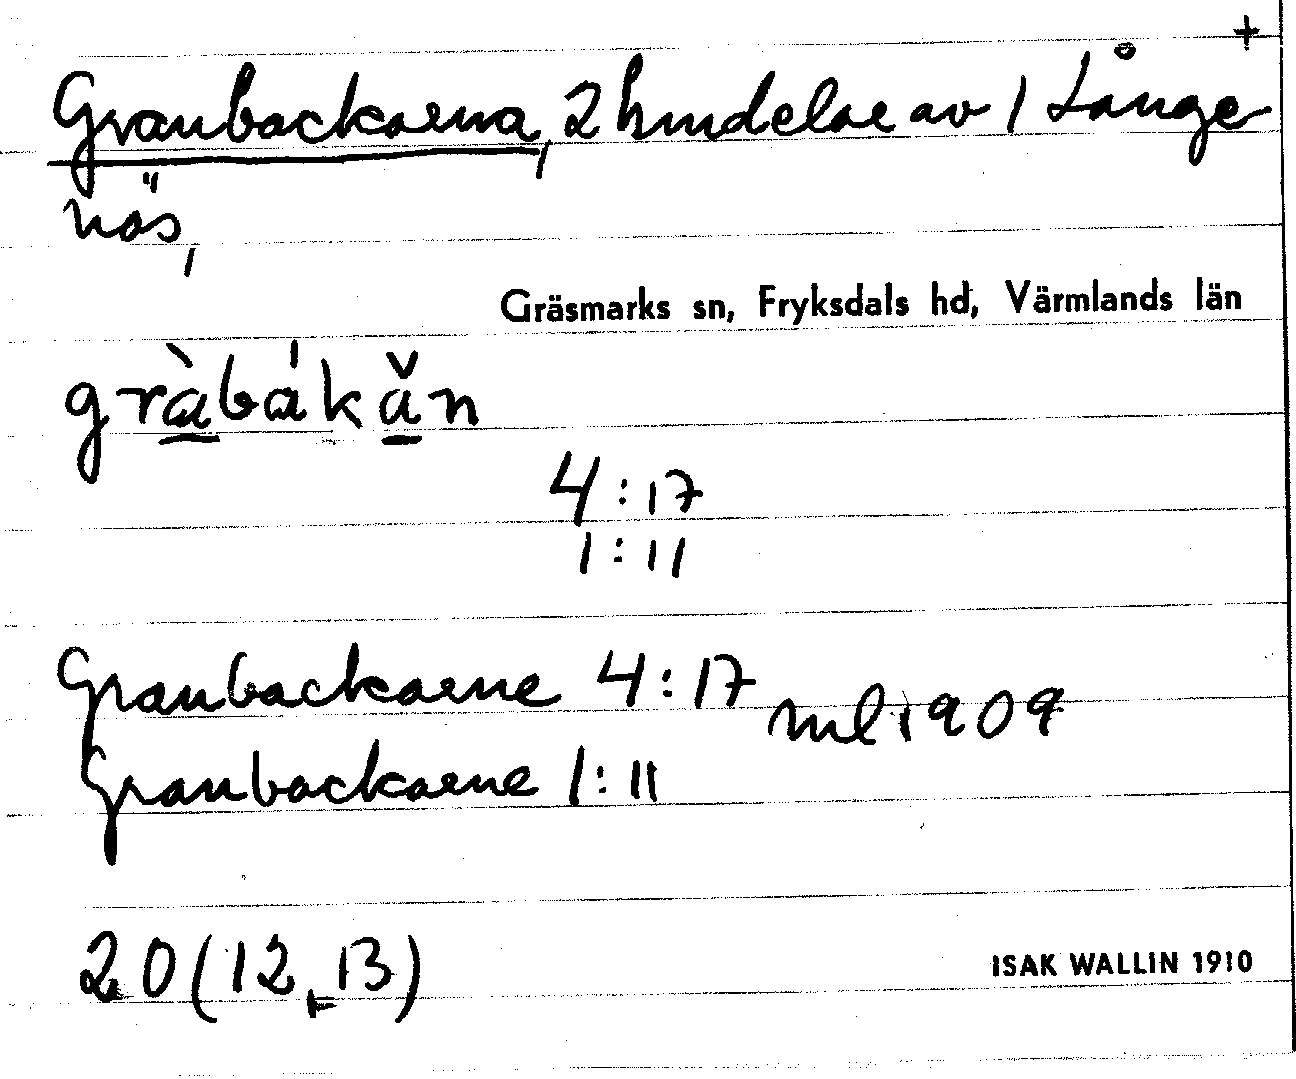 +
Granbackarna, 2 hmdelar av 1 Långe-
näs,
Gräsmarks sn, Fryksdals hd, Värmlands län
gràbákăn
4:17
1:11
Granbackarne 4:17 ml 1909
Granbackarne 1:11
20(12,13)
ISAK WALLIN 1910